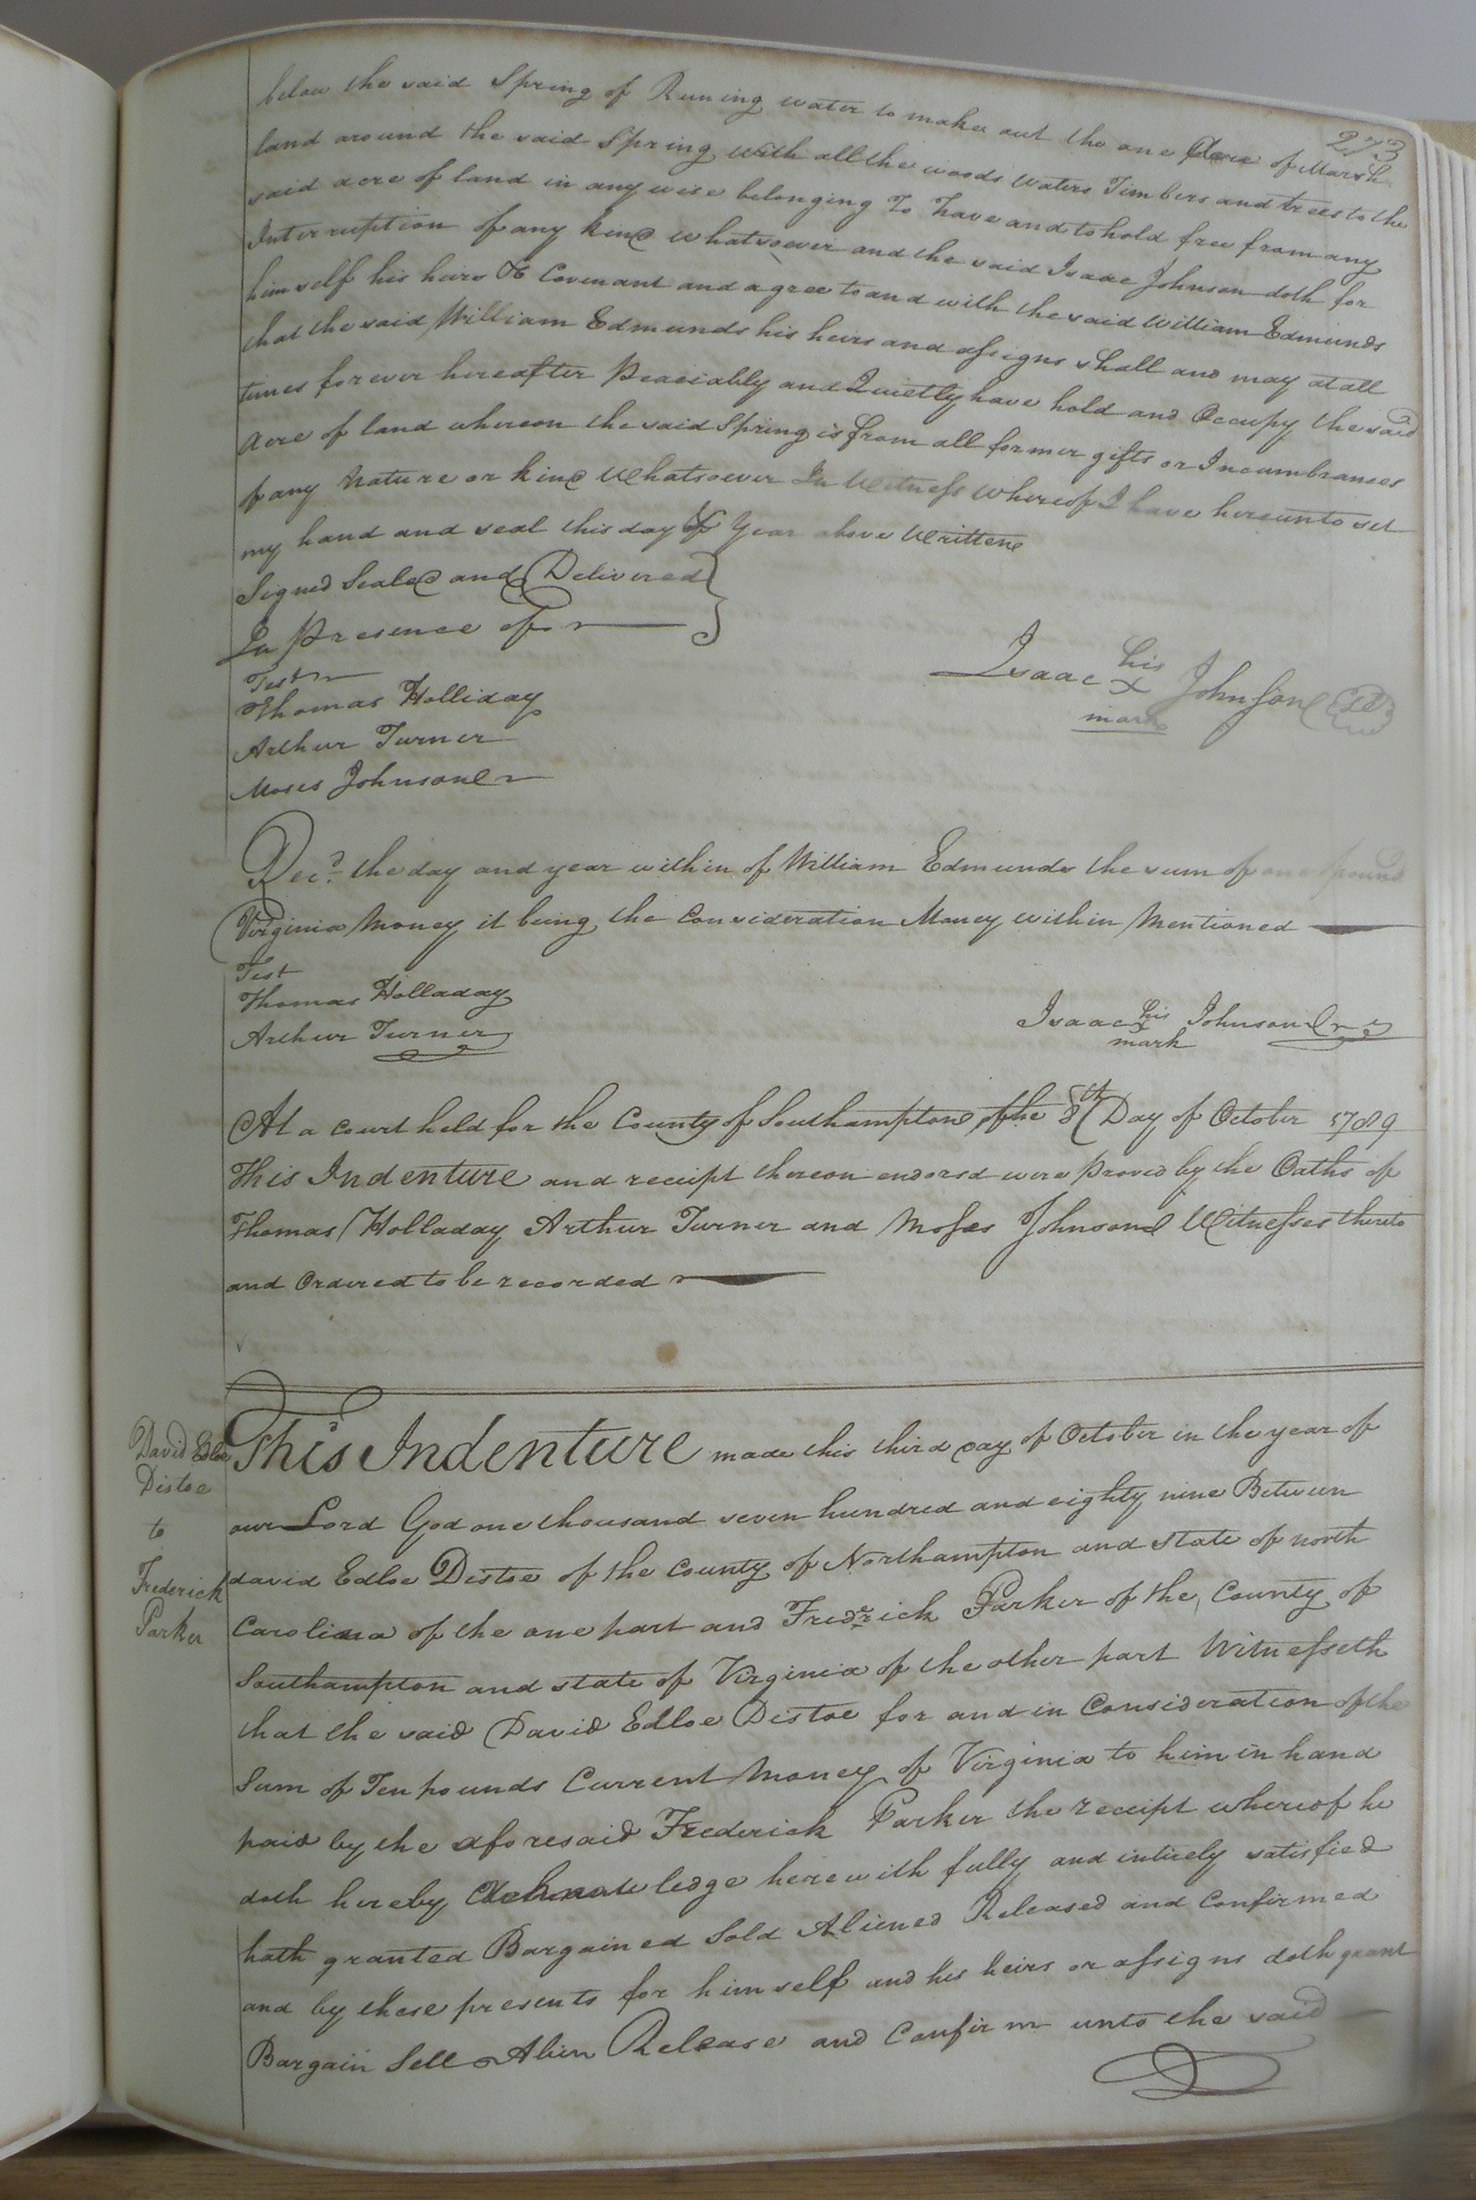 273
below the said Spring of Runing water to make out the one Acre of Marsh
land around the said Spring with all the woods waters Timbers and trees to the
said acre of land in any wise belonging To have and to hold free from any
Interruption of any kind whatsoever and the said Isaac Johnson doth for
himself his heirs &c Covenant and agree to and with the said William Edmunds
that the said William Edmunds his heirs and assigns shall and may at all
times forever hereafter Peaciably and Quietly have hold and Occupy the said
Acre of land whereon the said Spring is from all former gifts or Incumbrances
of any Nature or kind Whatsoever In Witness whereof I have hereunto set
my hand and seal this day & Year above Written
Signed Sealed and Delivered
In Presence of
Test
Thomas Holliday
Arthur Turner
Moses Johnson
Isaac his x mark Johnson
Rec.d the day and year within of William Edmunds the sum of one pound
Virginia Money it being the Consideration Money within Mentioned
Test
Thomas Holladay
Arthur Turner
Isaac his x mark Johnson
At a Court held for the County of Southampton the 8th Day of October 1789
This Indenture and receipt thereon endorsd were Proved by the Oaths of
Thomas Holladay Arthur Turner and Moses Johnson Witnesses thereto
and Ordered to be recorded
David Edloe
Distoe
to
Frederick
Parker
This Indenture made this third day of October in the year of
our Lord God one thousand seven hundred and eighty nine Between
david Edloe Distoe of the County of Northampton and state of north
Carolina of the one part and Frederick Parker of the County of
Southampton and state of Virginia of the other part Witnesseth
that the said David Edloe Distoe for and in Consideration of the
Sum of Ten pounds Current Money of Virginia to him in hand
paid by the aforesaid Frederick Parker the receipt whereof he
doth hereby Acknowledge herewith fully and intirely satisfied
hath granted Bargained Sold Aliened Released and Confirmed
and by these presents for himself and his heirs or assigns doth grant
Bargain Sell Alien Release and Confirm unto the said